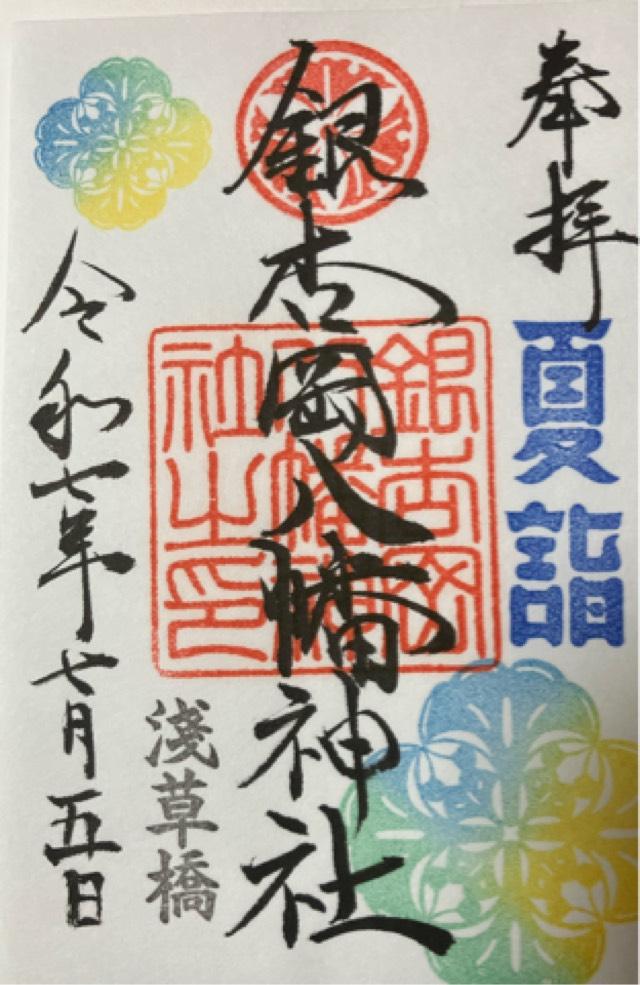 奉拝
夏詣
銀杏岡八幡神社
銀杏岡八幡神社之印
淺草橋
令和七年七月五日